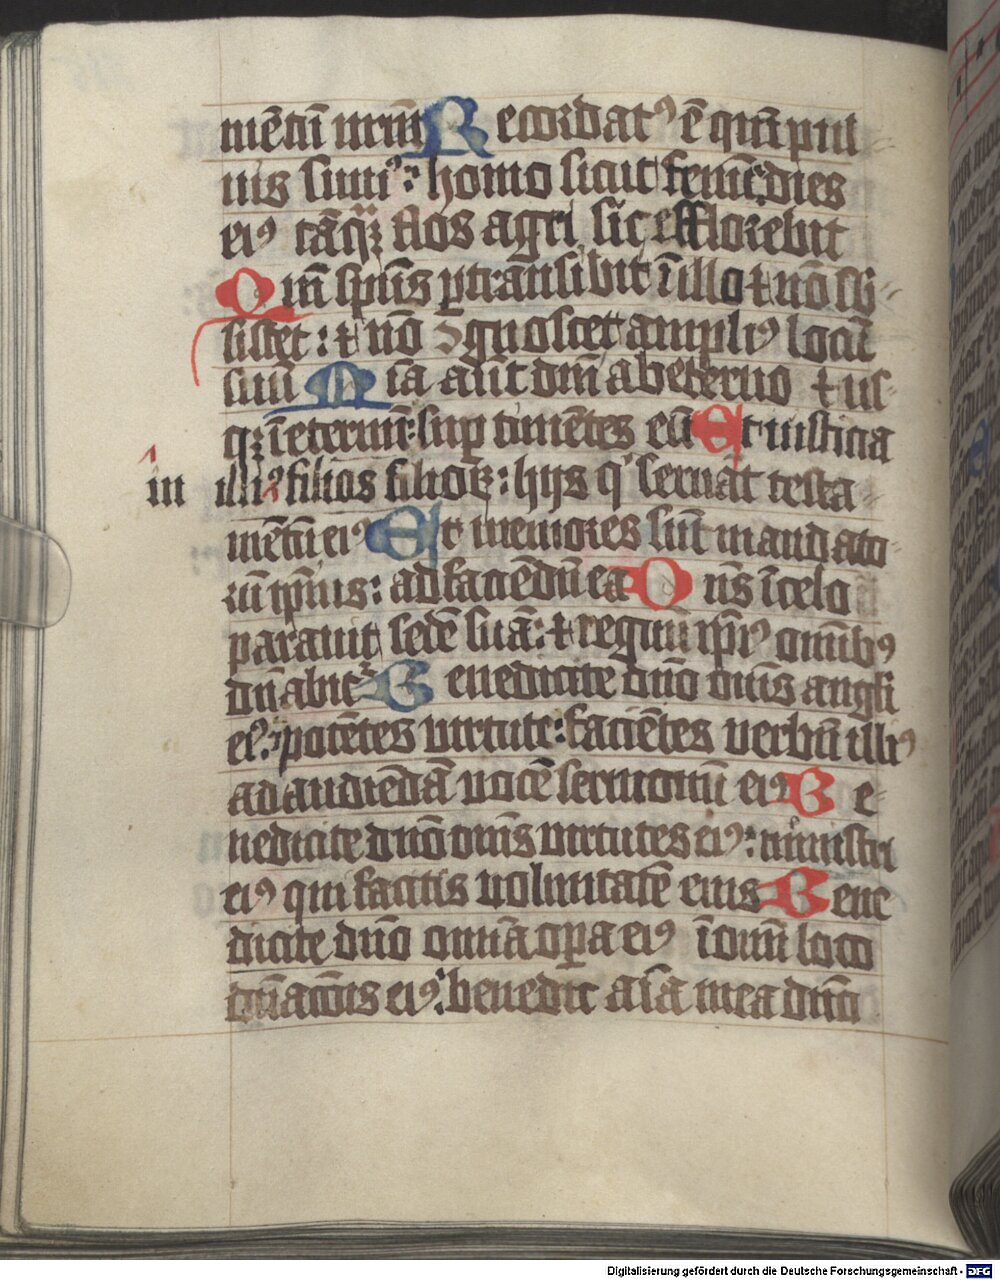 mētū nr̄m Recordatꝰ ē qm̄ pul
uis sumꝰ: homo sicut fenū dies
eiꝰ tāqꝫ flos agri sic efflorebit
Qm̄ sp̄us ꝑtransibit ī illo ⁊ nō sb
sistet: ⁊ nō ꝯgnoscet ampliꝰ locū
suū Mīa aūt dn̄i ab eterno ⁊ us
qꝫ ī eternū: suꝑ timētes eū Et iusticia
in illiꝰ filios filioꝝ: hijs q' seruāt testa
mētū eiꝰ Et memores sūt mandato
rū ip̄ius: ad faciēdū ea Dn̄s ī celo
parauit sedē suā: ⁊ regnū ip̄iꝰ omībꝰ
dn̄abit Benedicite dn̄o om̄s angli
eiꝰ: potētes virtute: faciētes verbū illiꝰ
ad audiēdā uocē sermonū eiꝰ Be
nedicite dn̄o om̄s virtutes eiꝰ: ministri
eiꝰ qui facitis voluntatē eius Bene
dicite dn̄o omnia oꝑa eiꝰ ī omī loco
dn̄atōis eiꝰ: benedic aīa mea dn̄o
Digitalisierung gefördert durch die Deutsche Forschungsgemeinschaft - DFG